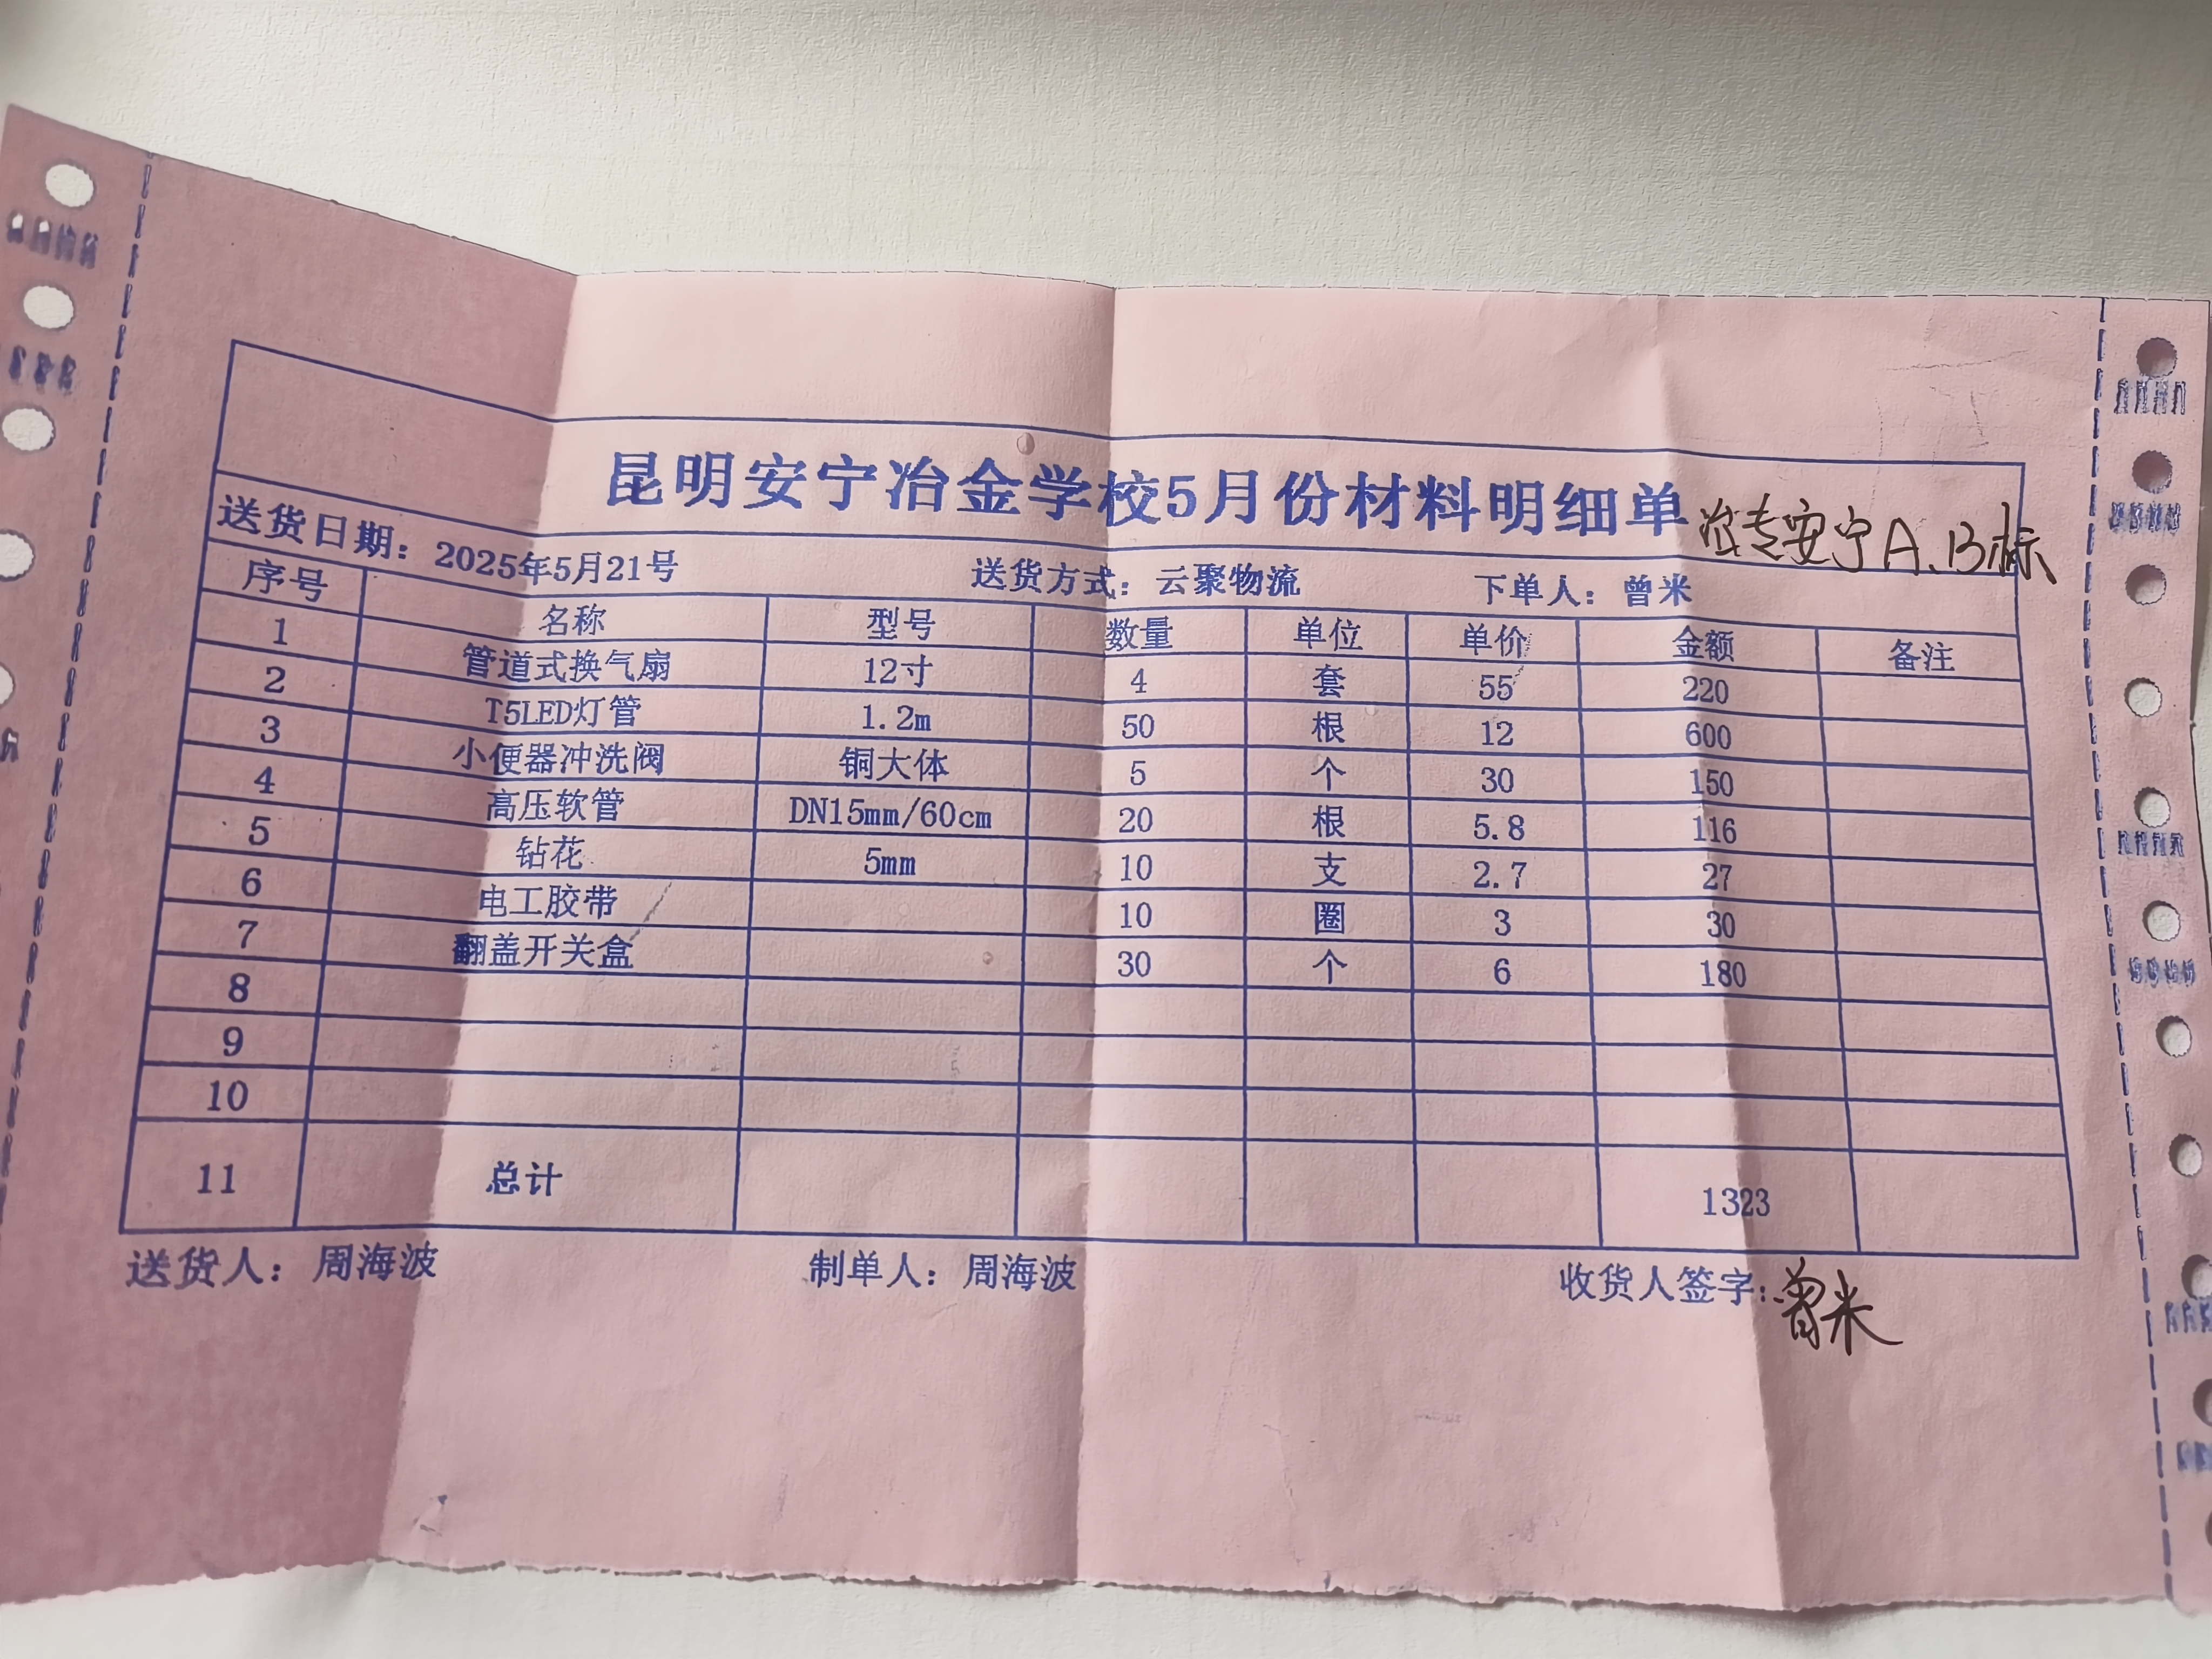 昆明安宁冶金学校5月份材料明细单 冶专安宁A、B标
送货日期：2025年5月21号 送货方式：云聚物流 下单人：曾米
序号 名称 型号 数量 单位 单价 金额 备注
1 管道式换气扇 12寸 4 套 55 220
2 T5LED灯管 1.2m 50 根 12 600
3 小便器冲洗阀 铜大体 5 个 30 150
4 高压软管 DN15mm/60cm 20 根 5.8 116
5 钻花 5mm 10 支 2.7 27
6 电工胶带 10 圈 3 30
7 翻盖开关盒 30 个 6 180
8
9
10
11 总计 1323
送货人：周海波 制单人：周海波 收货人签字：曾米